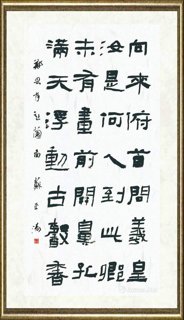 向來俯首問羲皇
汝是何人到此鄉
未有畫前開鼻孔
滿天浮動古馨香
鄭思肖